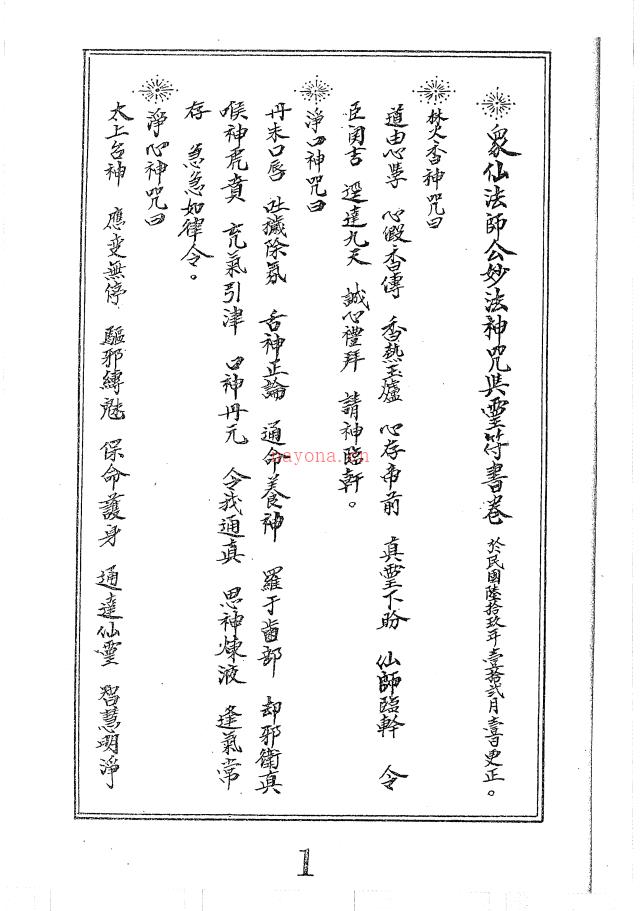 眾仙法師公妙法神咒與靈符書卷 於民國陸拾玖年壹拾弍月壹日更正。
焚香神咒曰
道由心學 心假香傳 香熱玉爐 心存帝前 真靈下盼 仙師臨幹 令
臣関吉 逕達九天 誠心禮拜 請神臨軒。
淨口神咒曰
丹朱口唇 吐穢除氛 舌神正論 通命養神 羅于齒部 却邪衛真
喉神虎賁 充氣引津 口神丹元 令我通真 思神煉液 逢氣常
存 急急如律令。
淨心神咒曰
太上台神 應变無停 驅邪縛魅 保命護身 通達仙靈 智慧玥淨
1
payona.cn